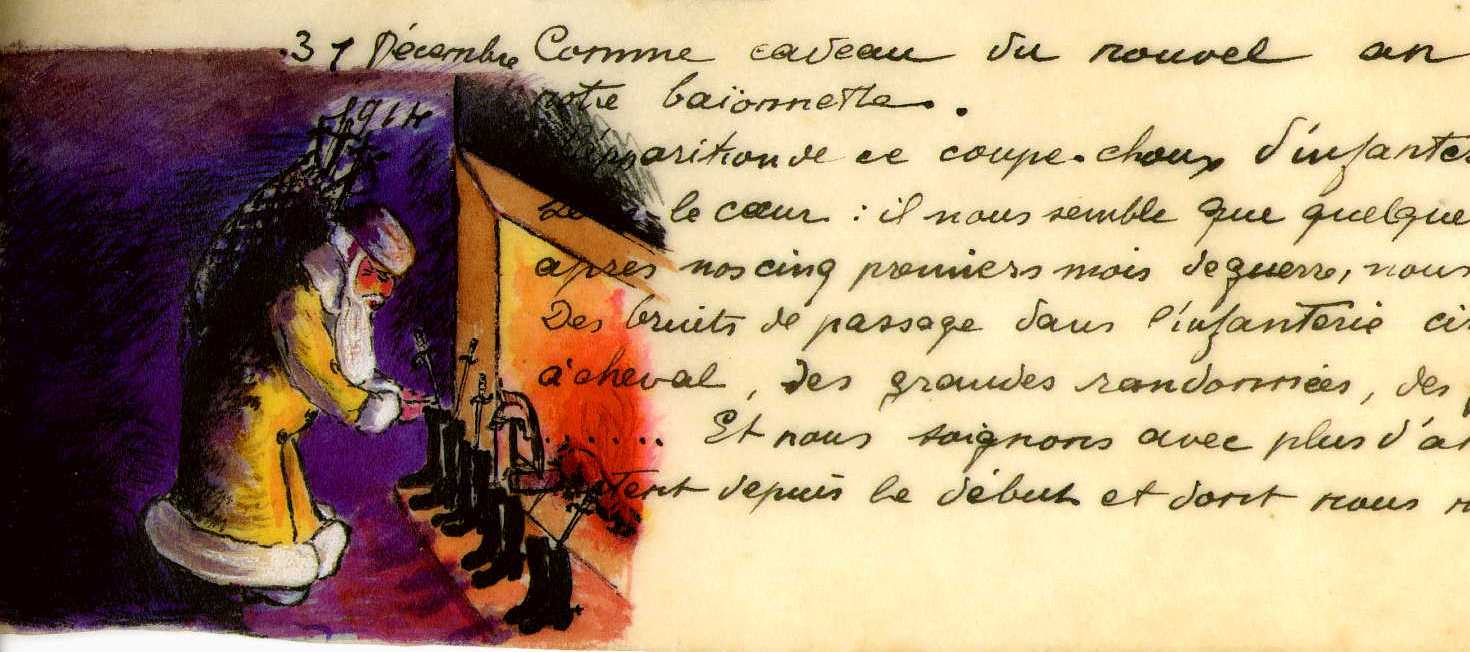 31 Décembre Comme cadeau du nouvel an
1914
notre baïonnette.
L'apparition de ce coupe-choux d'infanter
le cœur : il nous semble que quelque
après nos cinq premiers mois de guerre, nous
Des bruits de passage dans l'infanterie ci
à cheval, des grandes randonnées, des
....... Et nous soignons avec plus d'a
portent depuis le début et dont nous